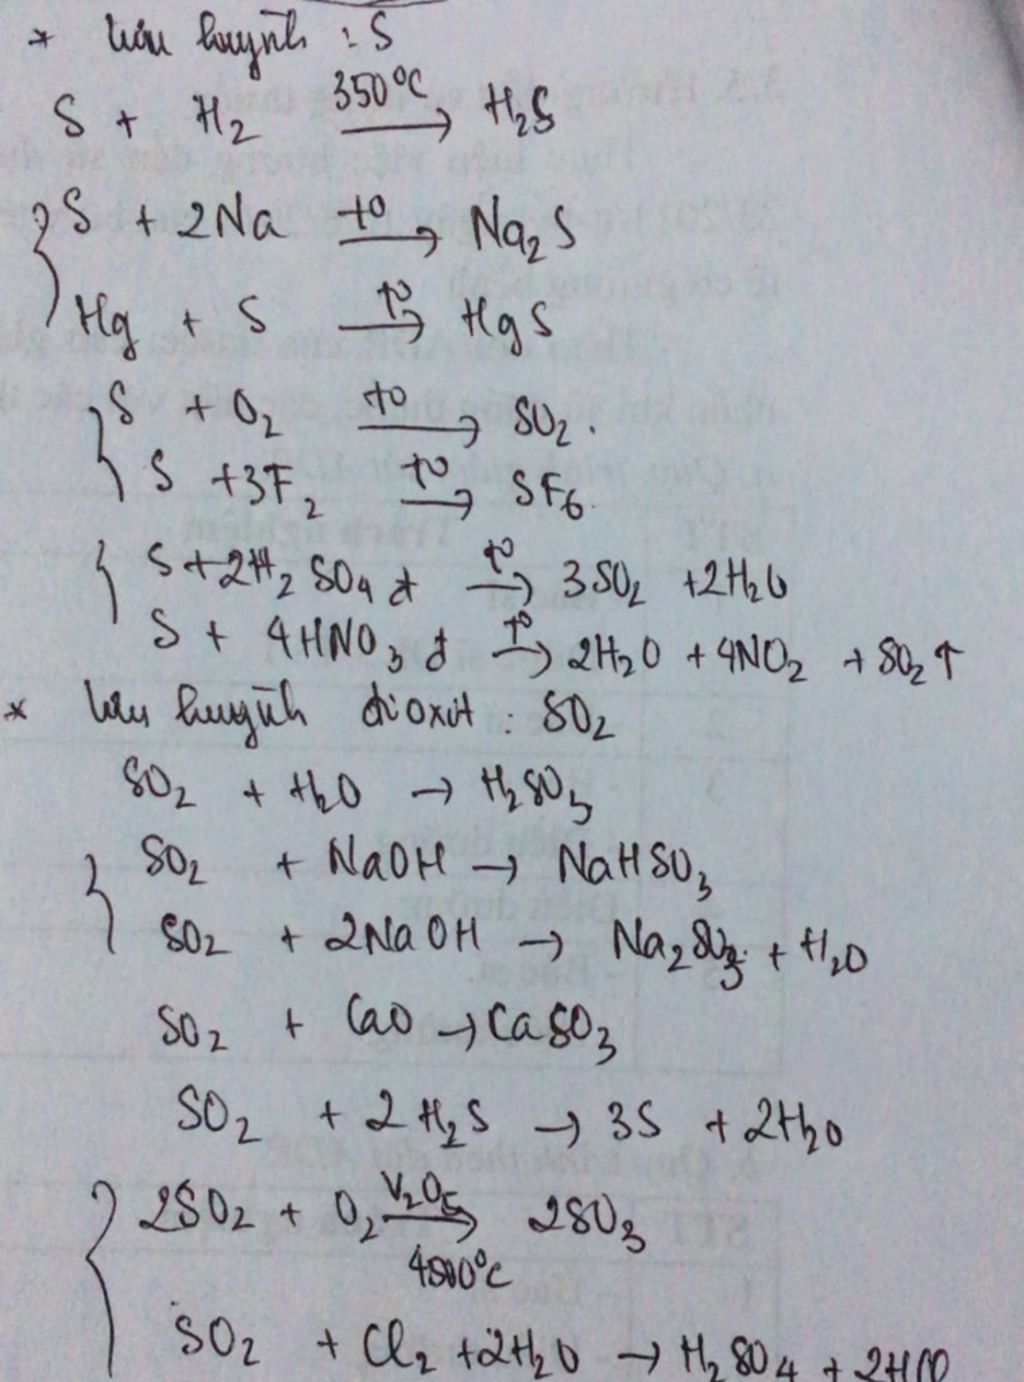 * Lưu huỳnh : S
S + H₂ →(350°C) H₂S
S + 2Na →(t°) Na₂S
Hg + S →(t°) HgS
S + O₂ →(t°) SO₂.
S + 3F₂ →(t°) SF₆.
S + 2H₂SO₄ đ →(t°) 3SO₂ + 2H₂O
S + 4HNO₃ đ →(t°) 2H₂O + 4NO₂ + SO₂↑
* Lưu huỳnh đioxit : SO₂
SO₂ + H₂O → H₂SO₃
SO₂ + NaOH → NaHSO₃
SO₂ + 2NaOH → Na₂SO₃ + H₂O
SO₂ + CaO → CaSO₃
SO₂ + 2H₂S → 3S + 2H₂O
2SO₂ + O₂ →(V₂O₅, °C) 2SO₃
SO₂ + Cl₂ + 2H₂O → H₂SO₄ + 2HCl